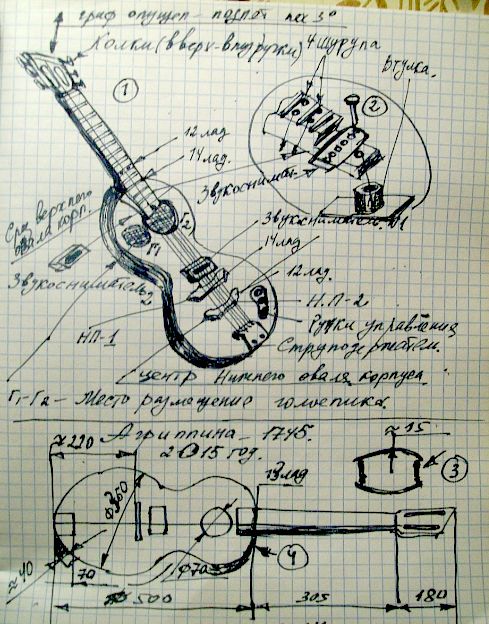 гриф опущен - подпят на 3°
Колки (вверх-вниз ручки)
4 шурупа
Втулка.
1
2
12 лад
14 лад.
Звукоснимат.
верхнего
овала корп.
Г2
Г1
Звукосниматель №1
14 лад
Звукосниматель
2
12 лад.
Н.П-2
НП-1
Ручки управления
Струнодержатель.
центр Нижнего овала корпуса.
Г1-Г2 - Место размещение голосника.
Агриппина - 1745.
2015 год.
≈220
≈15
3
13 лад
Ф350
4
≈40
70
Ф70
500
305
180